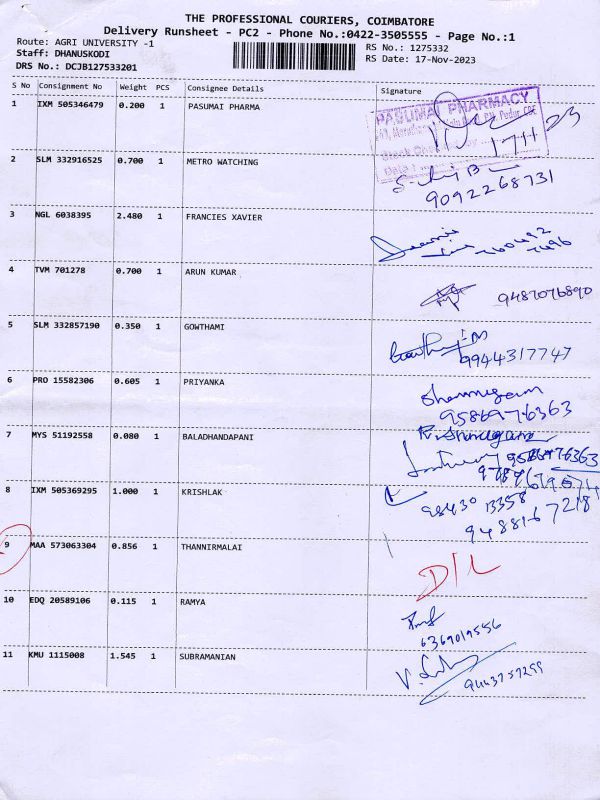 THE PROFESSIONAL COURIERS, COIMBATORE
Delivery Runsheet - PC2 - Phone No.:0422-3505555 - Page No.:1
Route: AGRI UNIVERSITY -1
Staff: DHANUSKODI
DRS No.: DCJB127533201
RS No.: 1275332
RS Date: 17-Nov-2023
S No Consignment No Weight PCS Consignee Details Signature
1 IXM 505346479 0.200 1 PASUMAI PHARMA
PASUMAI PHARMACY
17/11
23
2 SLM 332916525 0.700 1 METRO WATCHING
9092268731
3 NGL 6038395 2.480 1 FRANCIES XAVIER
4 TVM 701278 0.700 1 ARUN KUMAR
9487076890
5 SLM 332857190 0.350 1 GOWTHAMI
9944317747
6 PRO 15582306 0.605 1 PRIYANKA
Shanmugam
9586976363
7 MYS 51192558 0.080 1 BALADHANDAPANI
8 IXM 505369295 1.000 1 KRISHLAK
98430 13358
9488167218
9 MAA 573063304 0.856 1 THANNIRMALAI
D/L
10 EDQ 20589106 0.115 1 RAMYA
6369019556
11 KMU 1115008 1.545 1 SUBRAMANIAN